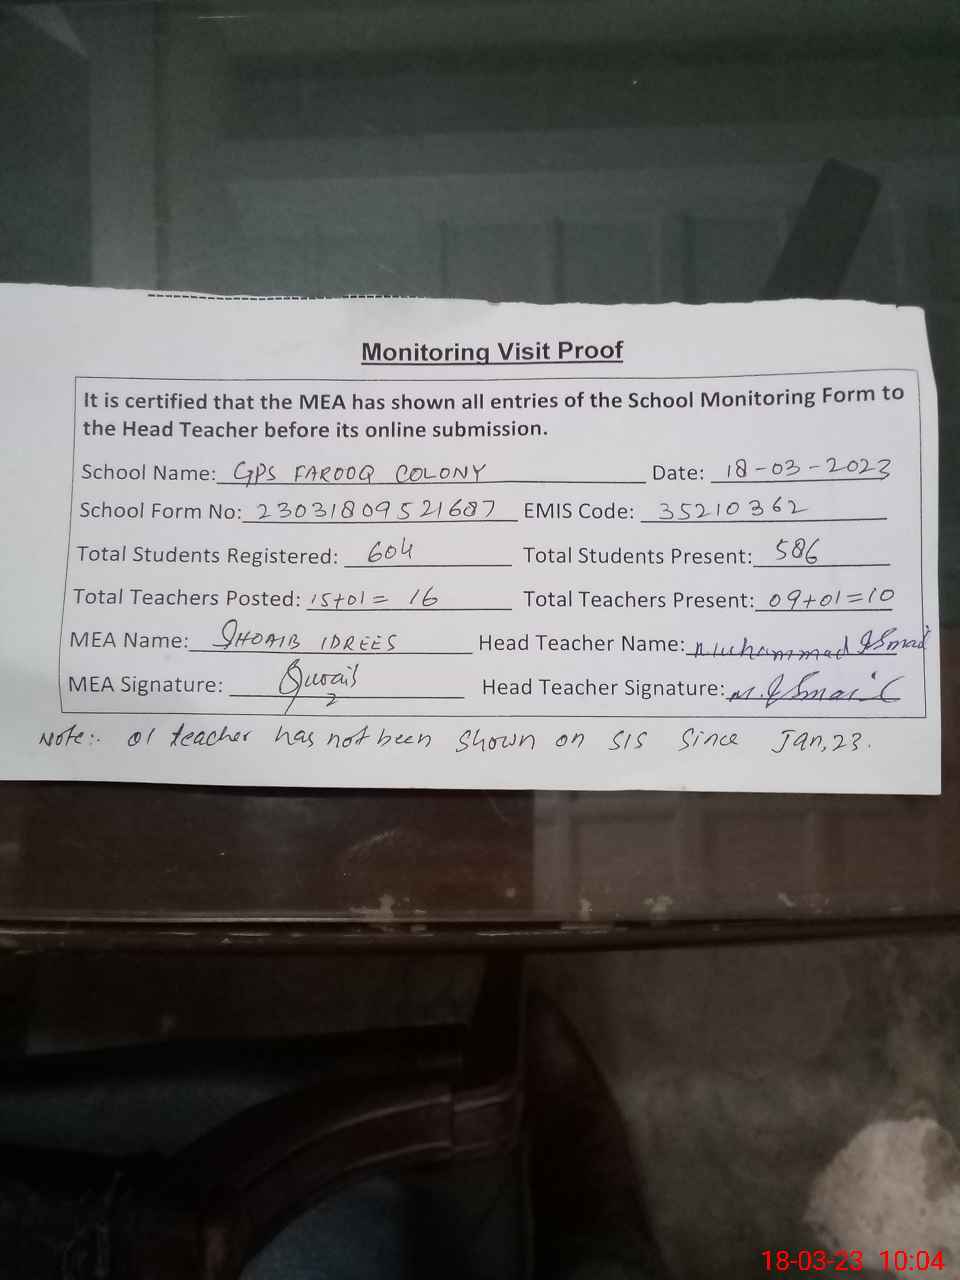 Monitoring Visit Proof
It is certified that the MEA has shown all entries of the School Monitoring Form to
the Head Teacher before its online submission.
School Name: GPS FAROOQ COLONY Date: 18-03-2023
School Form No: 23031809521687 EMIS Code: 35210362
Total Students Registered: 604 Total Students Present: 586
Total Teachers Posted: 15+01= 16 Total Teachers Present: 09+01=10
MEA Name: SHOAIB IDREES Head Teacher Name: Muhammad Ismail
MEA Signature: Head Teacher Signature: M. Ismail
Note:. 01 teacher has not been shown on SIS Since Jan,23.
18-03-23 10:04